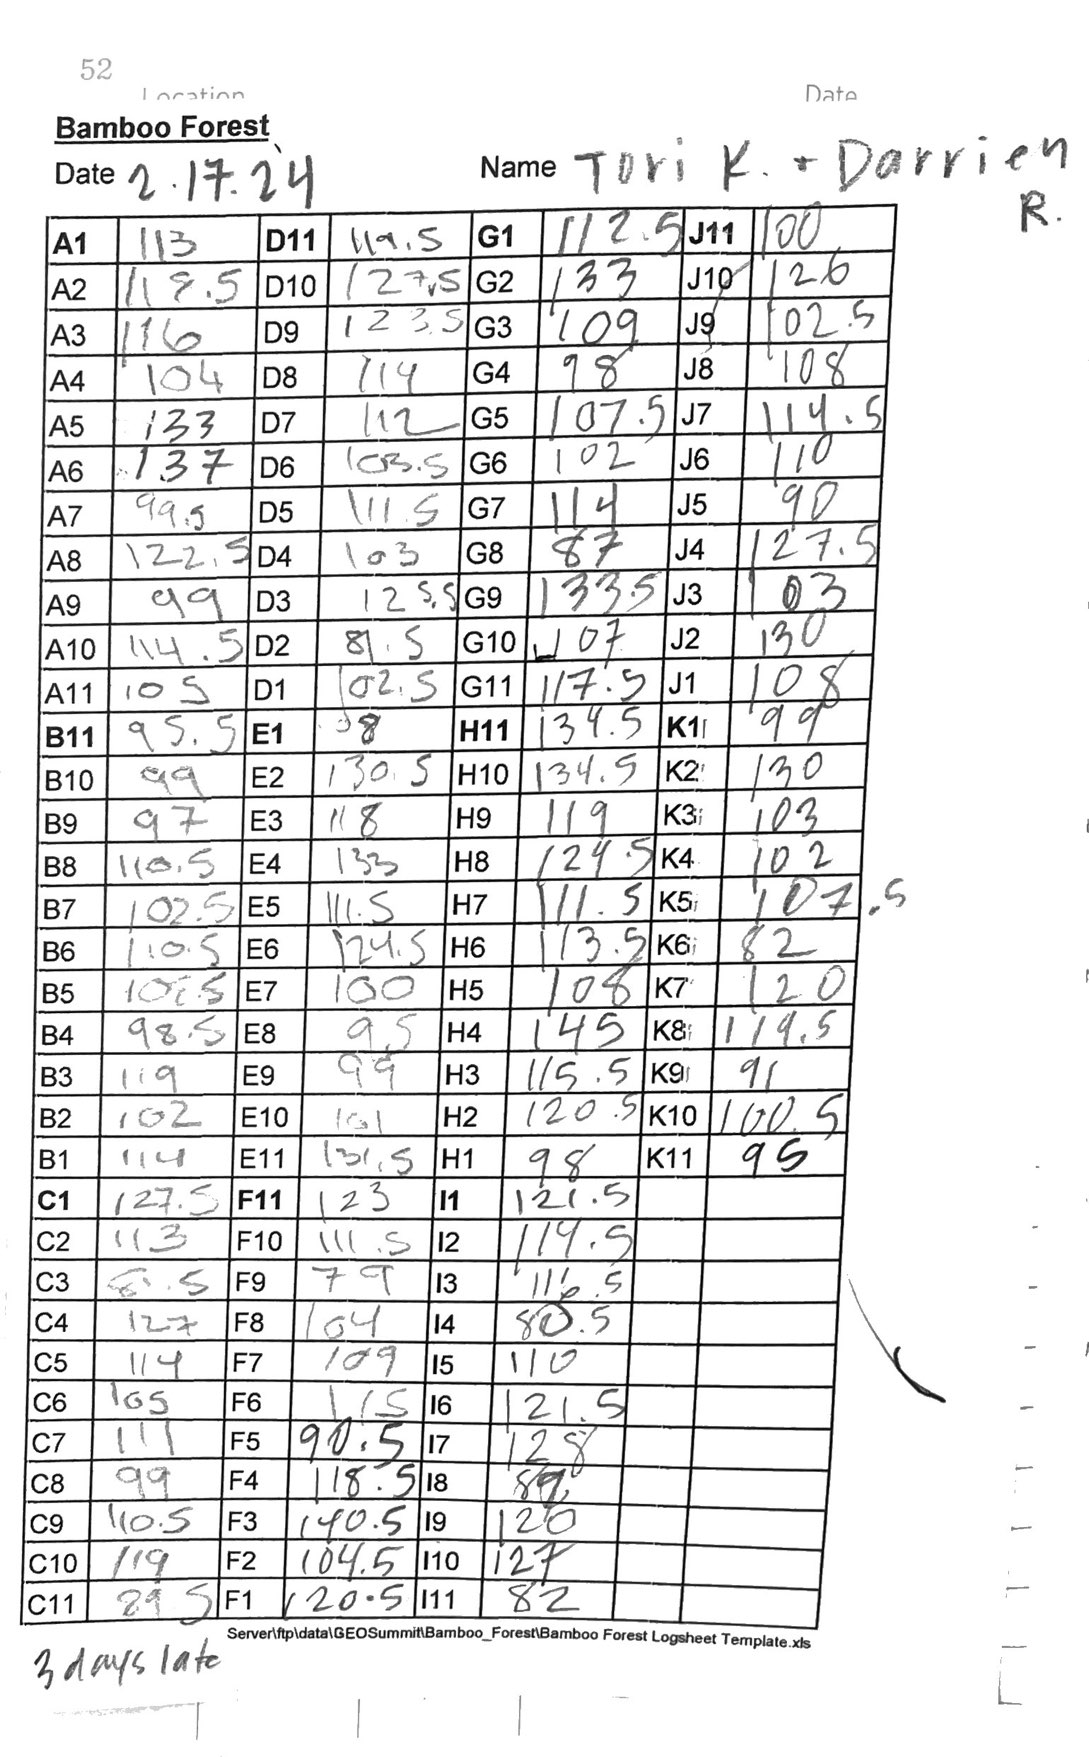 52
Location Date
Bamboo Forest
Date 2.17.24 Name Tori K. + Darrien
R.
A1 113 D11 119.5 G1 112.5 J11 100
A2 118.5 D10 127.5 G2 133 J10 126
A3 116 D9 123.5 G3 109 J9 102.5
A4 104 D8 114 G4 98 J8 108
A5 133 D7 112 G5 107.5 J7 114.5
A6 137 D6 103.5 G6 102 J6 110
A7 99.5 D5 111.5 G7 114 J5 90
A8 122.5 D4 103 G8 87 J4 127.5
A9 99 D3 125.5 G9 133.5 J3 103
A10 114.5 D2 81.5 G10 107 J2 130
A11 105 D1 102.5 G11 117.5 J1 108
B11 95.5 E1 H11 134.5 K1 99
B10 99 E2 130.5 H10 134.5 K2 130
B9 97 E3 118 H9 119 K3 103
B8 110.5 E4 133 H8 124.5 K4 102
B7 102.5 E5 111.5 H7 111.5 K5 107.5
B6 110.5 E6 124.5 H6 113.5 K6 82
B5 E7 100 H5 108 K7 120
B4 98.5 E8 95 H4 145 K8 119.5
B3 119 E9 99 H3 115.5 K9 91
B2 102 E10 101 H2 120.5 K10 100.5
B1 114 E11 131.5 H1 98 K11 95
C1 127.5 F11 123 I1 121.5
C2 113 F10 111.5 I2 114.5
C3 F9 79 I3 116.5
C4 127 F8 104 I4 80.5
C5 114 F7 109 I5 110
C6 105 F6 115 I6 121.5
C7 111 F5 90.5 I7 128
C8 99 F4 118.5 I8 89
C9 110.5 F3 140.5 I9 120
C10 119 F2 104.5 I10 127
C11 89.5 F1 120.5 I11 82
Server\ftp\data\GEOSummit\Bamboo_Forest\Bamboo Forest Logsheet Template.xls
3 days late